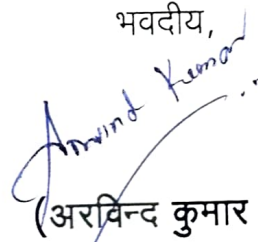 भवदीय,
Arvind Kumar
(अरविन्द कुमार